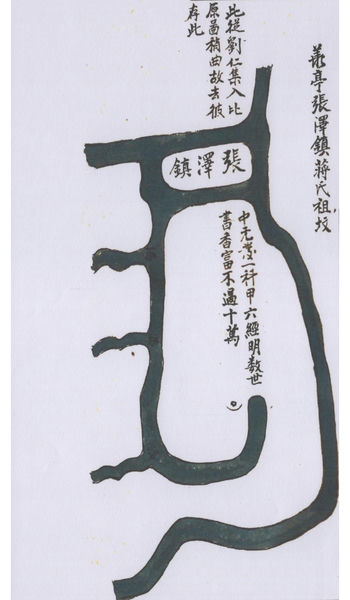 義亭張澤鎮蔣氏祖坟
此從劉仁集入比
原畧稍曲故去彼
存此
張澤鎮
中元發一科甲六經明数世
書香富不過十萬